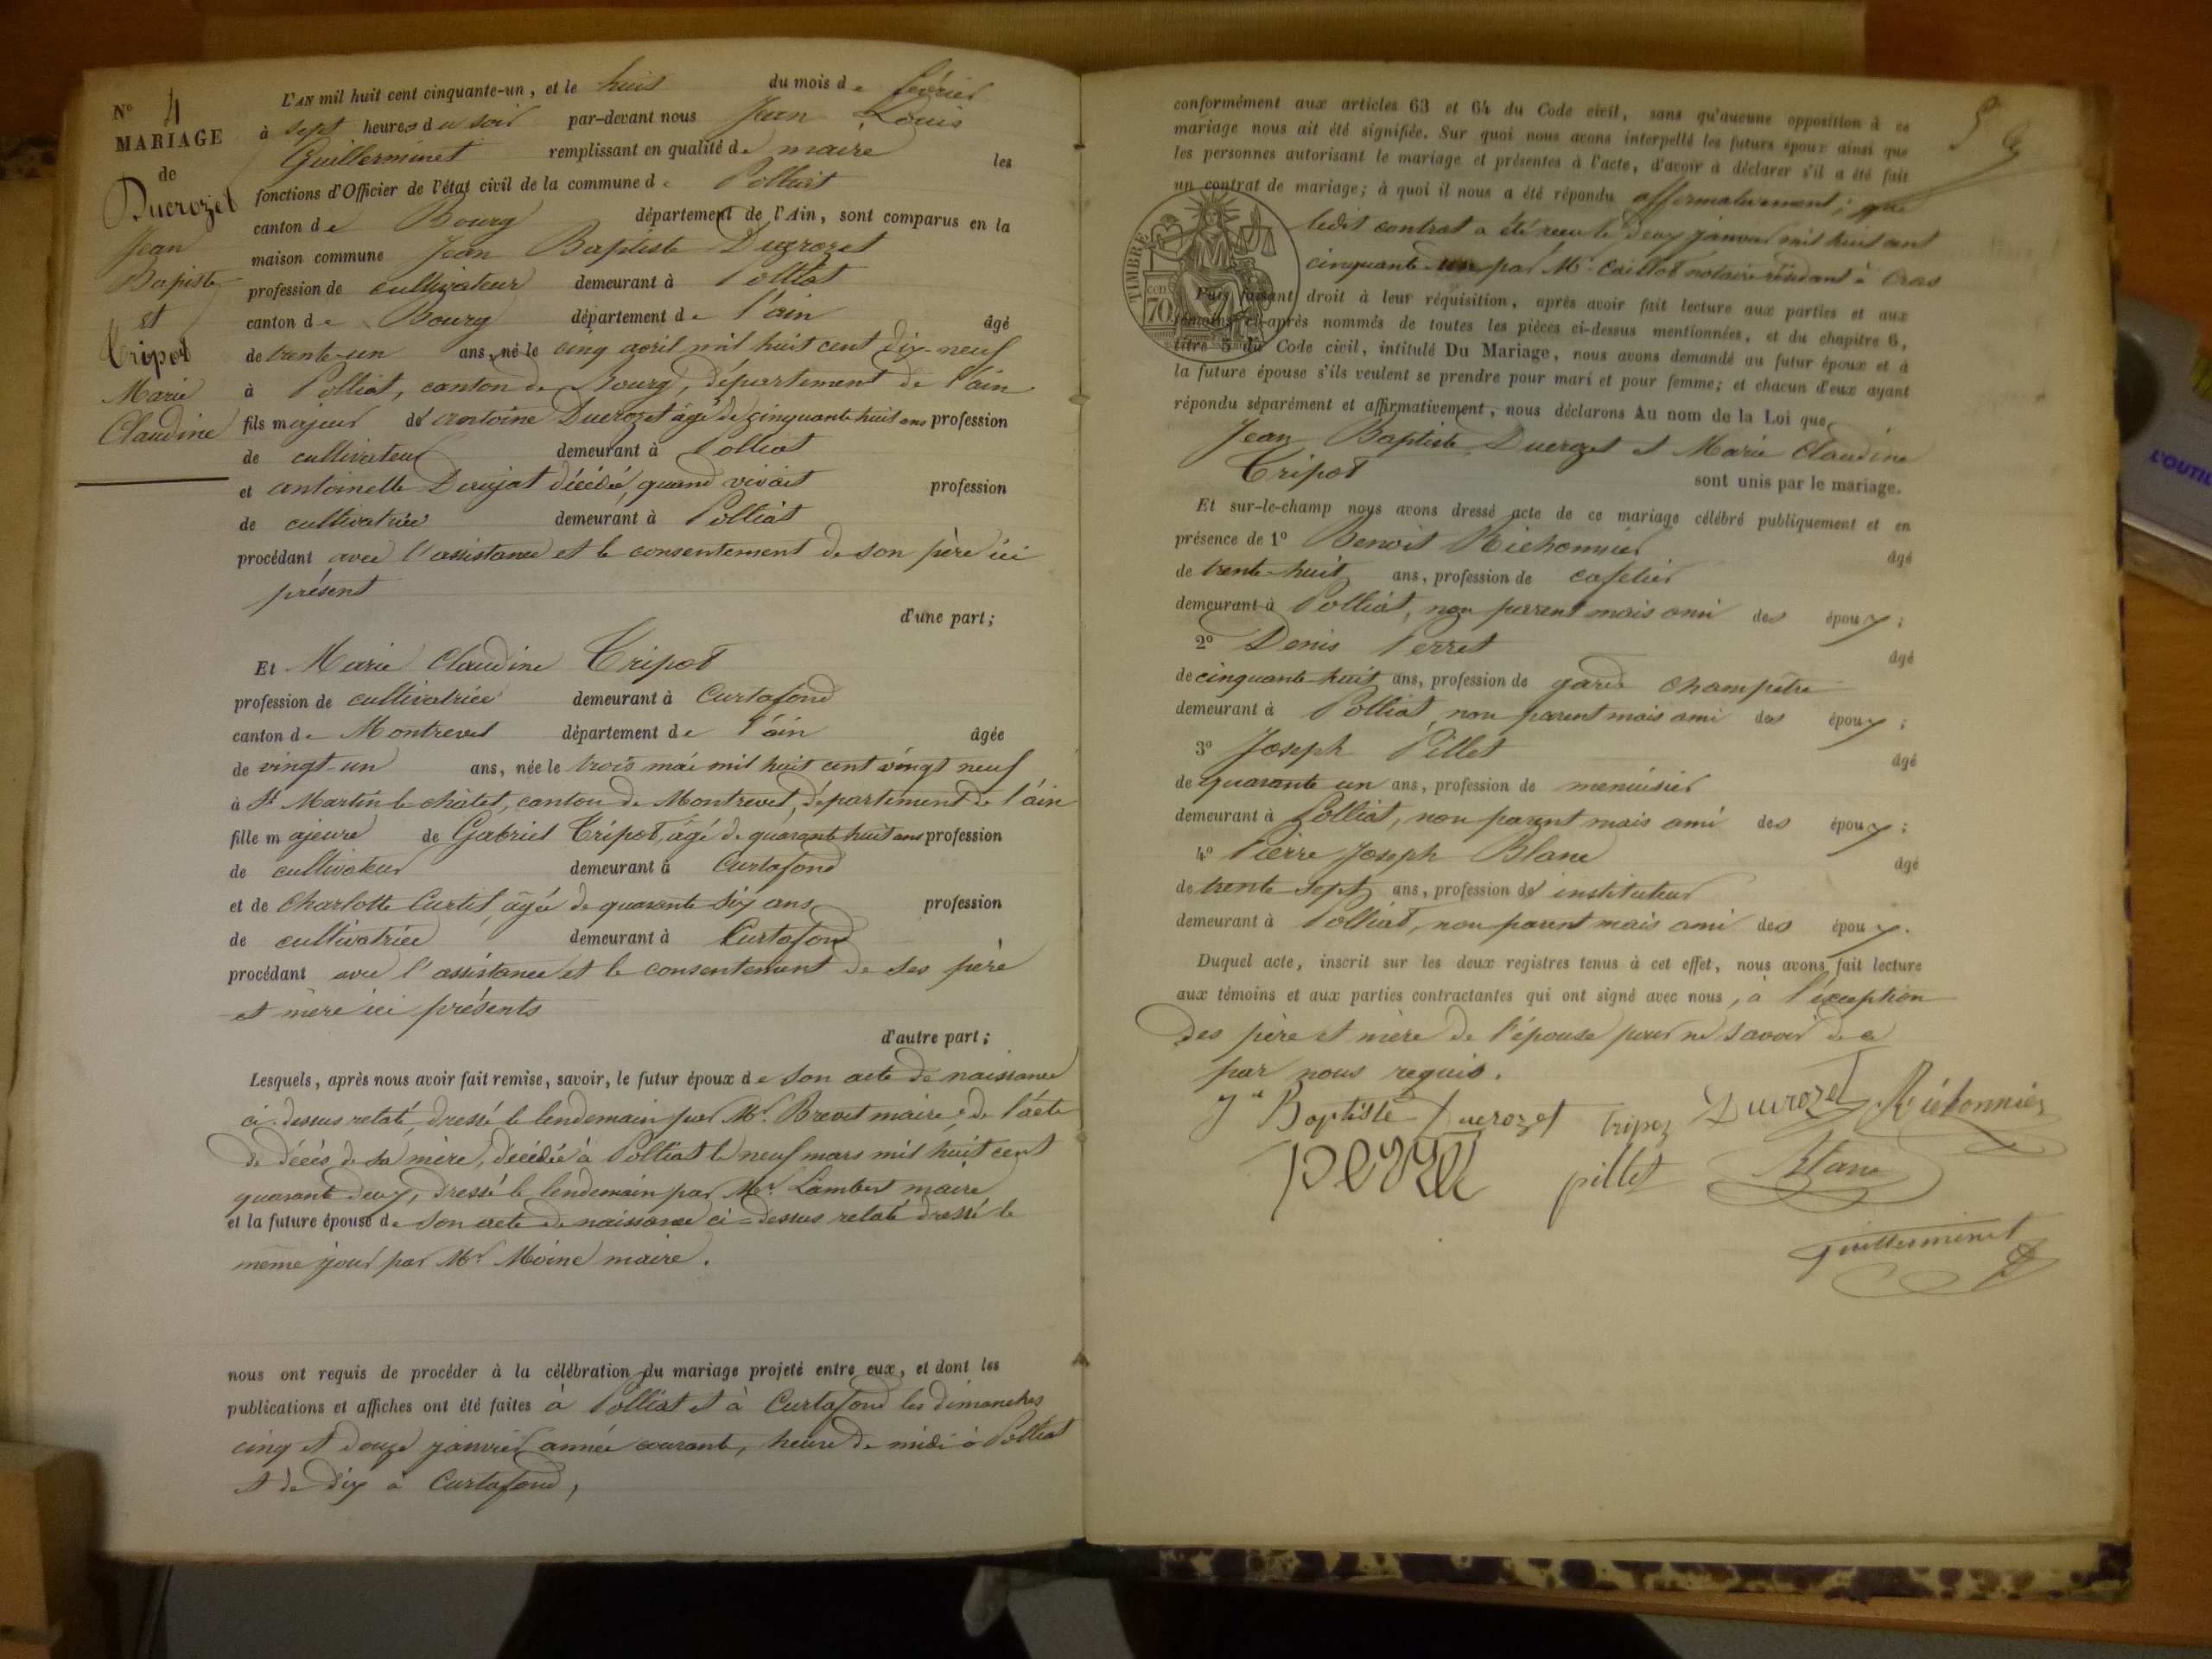 N° 4
MARIAGE
de
Ducrozet
Jean
Bapiste
et
Tripot
Marie
Claudine
L'AN mil huit cent cinquante-un, et le huit du mois de février
à sept heures du soir par-devant nous Jean Louis
Guillerminet remplissant en qualité de maire les
fonctions d'Officier de l'état civil de la commune de Polliat
canton de Bourg département de l'Ain, sont comparus en la
maison commune Jean Baptiste Ducrozet
profession de cultivateur demeurant à Polliat
canton de Bourg département de l'ain âgé
de trente-un ans, né le cinq avril mil huit cent dix-neuf
à Polliat, canton de Bourg, département de l'ain
fils majeur de antoine Ducrozet âgé de cinquante huit ans profession
de cultivateur demeurant à Polliat
et antoinette décédée, quand vivait profession
de cultivatrice demeurant à Polliat
procédant avec l'assistance et le consentement de son père ici
présent
d'une part;
Et Marie Claudine Tripot
profession de cultivatrice demeurant à Curtafond
canton de Montrevel département de l'ain âgée
de vingt-un ans, née le trois mai mil huit cent vingt neuf
à St Martin le châtel, canton de Montrevel, département de l'ain
fille majeure de Gabriel Tripot, âgé de quarante huit ans profession
de cultivateur demeurant à Curtafond
et de Charlotte Curtet, âgée de quarante-six ans profession
de cultivatrice demeurant à Curtafond
procédant avec l'assistance et le consentement de ses père
et mère ici présents
d'autre part;
Lesquels, après nous avoir fait remise, savoir, le futur époux de son acte de naissance
ci-dessus relaté, dressé le lendemain par Mr. Brevet maire, de l'acte
de décès de sa mère, décédée à Polliat le neuf mars mil huit cent
quarante deux, dressé le lendemain par Mr. Lambert maire
et la future épouse de son acte de naissance ci-dessus relaté dressé le
même jour par Mr Moine maire.
nous ont requis de procéder à la célébration du mariage projeté entre eux, et dont les
publications et affiches ont été faites à Polliat et à Curtafond les dimanches
cinq et douze janvier année courante, heure de midi à Polliat
et de dix à Curtafond,
5
conformément aux articles 63 et 64 du Code civil, sans qu'aucune opposition à ce
mariage nous ait été signifiée. Sur quoi nous avons interpellé les futurs époux ainsi que
les personnes autorisant le mariage et présentes à l'acte, d'avoir à déclarer s'il a été fait
un contrat de mariage; à quoi il nous a été répondu affirmativement; que
ledit contrat a été reçu le deux janvier mil huit cent
cinquante-un par Mr. Caillot notaire résidant à Cras
TIMBRE
70 cen
Puis faisant droit à leur réquisition, après avoir fait lecture aux parties et aux
témoins ci-après nommés de toutes les pièces ci-dessus mentionnées, et du chapitre 6,
titre 5 du Code civil, intitulé Du Mariage, nous avons demandé au futur époux et à
la future épouse s'ils veulent se prendre pour mari et pour femme; et chacun d'eux ayant
répondu séparément et affirmativement, nous déclarons Au nom de la Loi que
Jean Baptiste Ducrozet et Marie Claudine
Tripot sont unis par le mariage.
Et sur-le-champ nous avons dressé acte de ce mariage célébré publiquement et en
présence de 1° Benoit Richonnier âgé
de trente-huit ans, profession de cafetier
demeurant à Polliat, non parent mais ami des époux;
2° Denis Perret âgé
de cinquante-huit ans, profession de garde champêtre
demeurant à Polliat, non parent mais ami des époux;
3° Joseph Pillet âgé
de quarante un ans, profession de menuisier
demeurant à Polliat, non parent mais ami des époux;
4° Pierre Joseph Blanc âgé
de trente-sept ans, profession de instituteur
demeurant à Polliat, non parent mais ami des époux.
Duquel acte, inscrit sur les deux registres tenus à cet effet, nous avons fait lecture
aux témoins et aux parties contractantes qui ont signé avec nous, à l'exception
des père et mère de l'épouse pour ne savoir de ce
par nous requis.
Jn Baptiste Ducrozet Tripoz Ducrozet Richonnier
perret pillet Blanc
Guillerminet
L'OUTIL